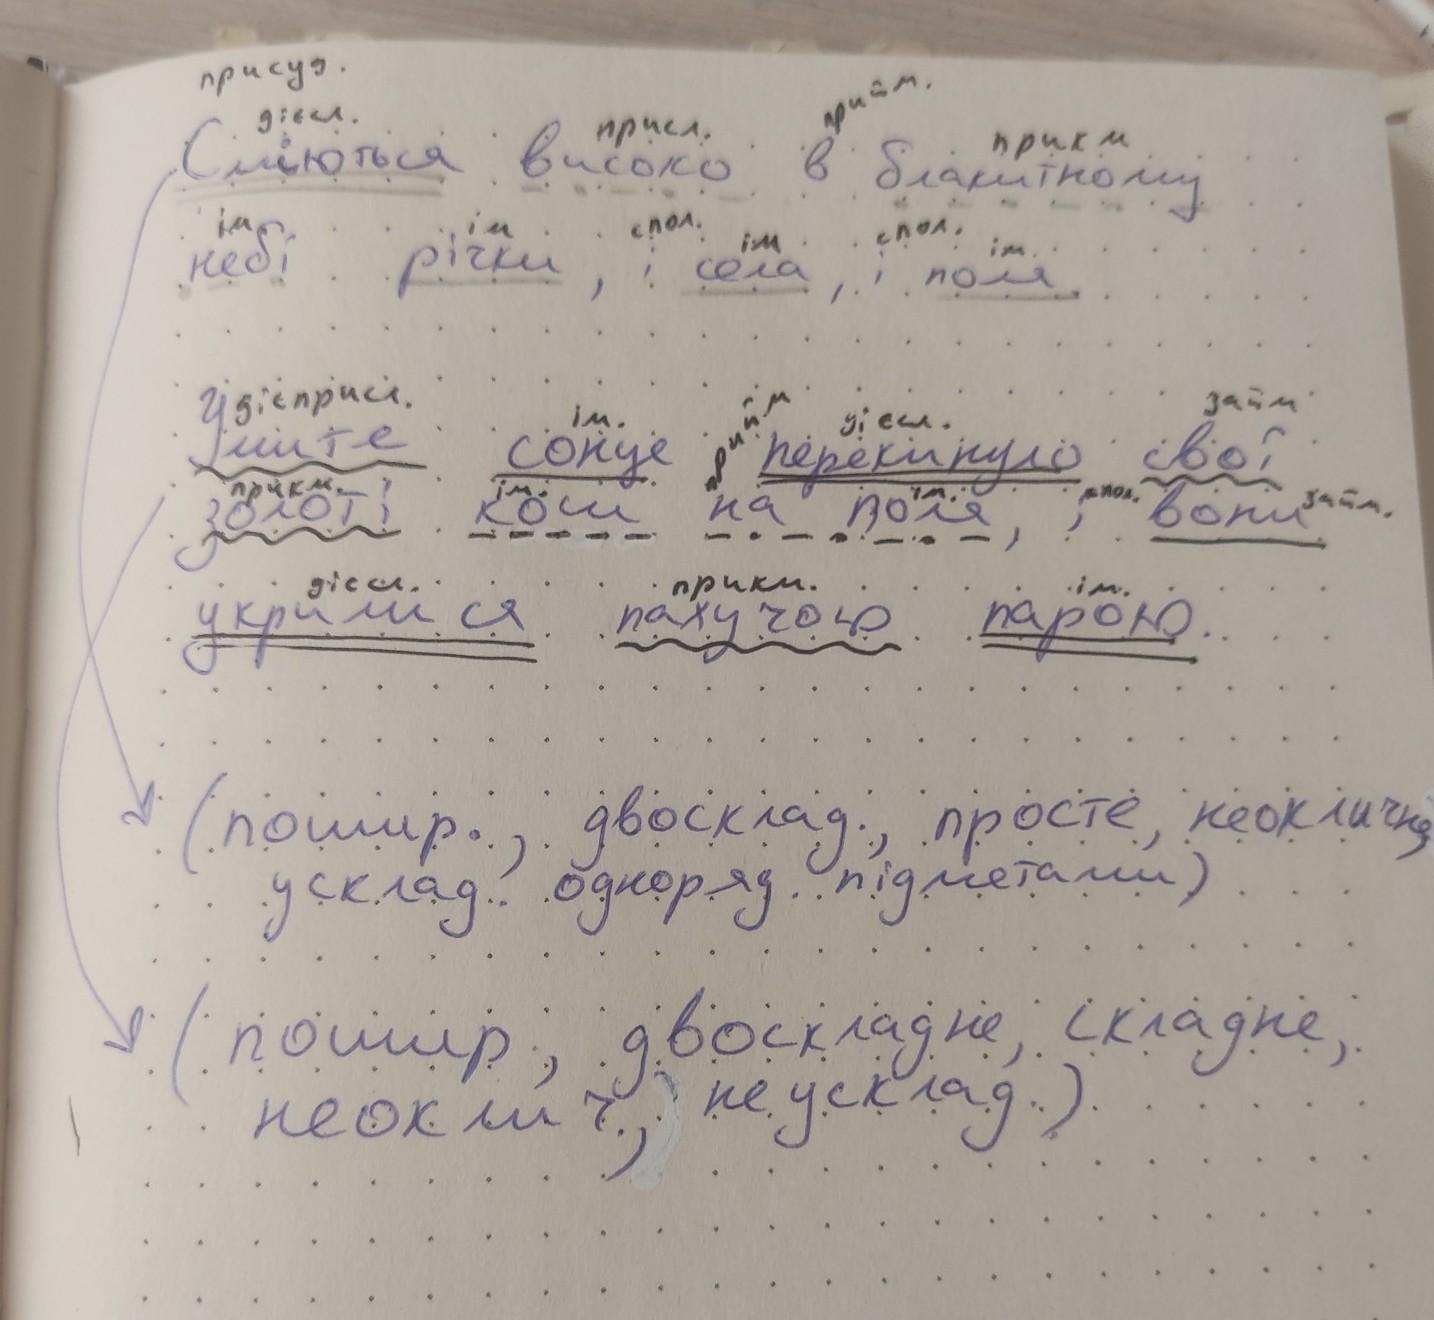 присуд.
дієсл. присл. прийм. прикм
Сміються високо в блакитному
ім ім спол. ім спол. ім.
небі річки, і села, і поля.
дієприсл. ім. прийм дієсл. займ
Умите сонце перекинуло свої
прикм. ім. ім. спол. займ.
золоті коси на поля, і вони
дієсл. прикм. ім.
укрилися пахучою парою.
(пошир., двосклад., просте, неокличне,
усклад. одноряд. підметами)
(пошир, двоскладне, складне,
неоклич., не усклад.)